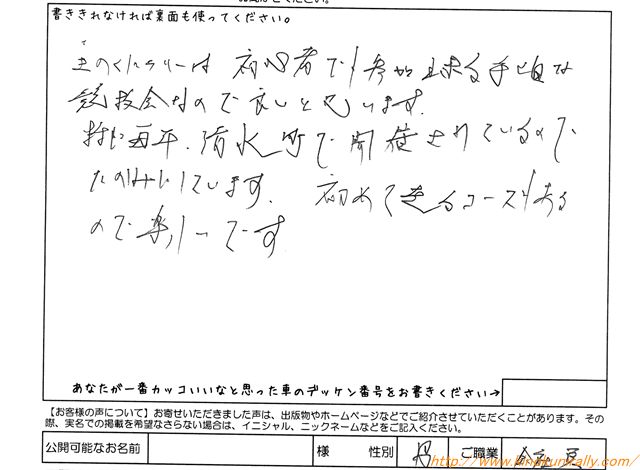 書ききれなければ裏面も使ってください。
は 初心者でも参加出来る手頃な
競技会なので良いと思います。
特に毎年、清水町で開催されているので
たのしみにしています。 初めて走るコースもある
ので楽しいです
あなたが一番カッコいいなと思った車のデッケン番号をお書きください→
【お客様の声について】お寄せいただきました声は、出版物やホームページなどでご紹介させていただくことがあります。その
際、実名での掲載を希望なさらない場合は、イニシャル、ニックネームなどをご記入ください。
公開可能なお名前 様 性別 男 ご職業 会社員